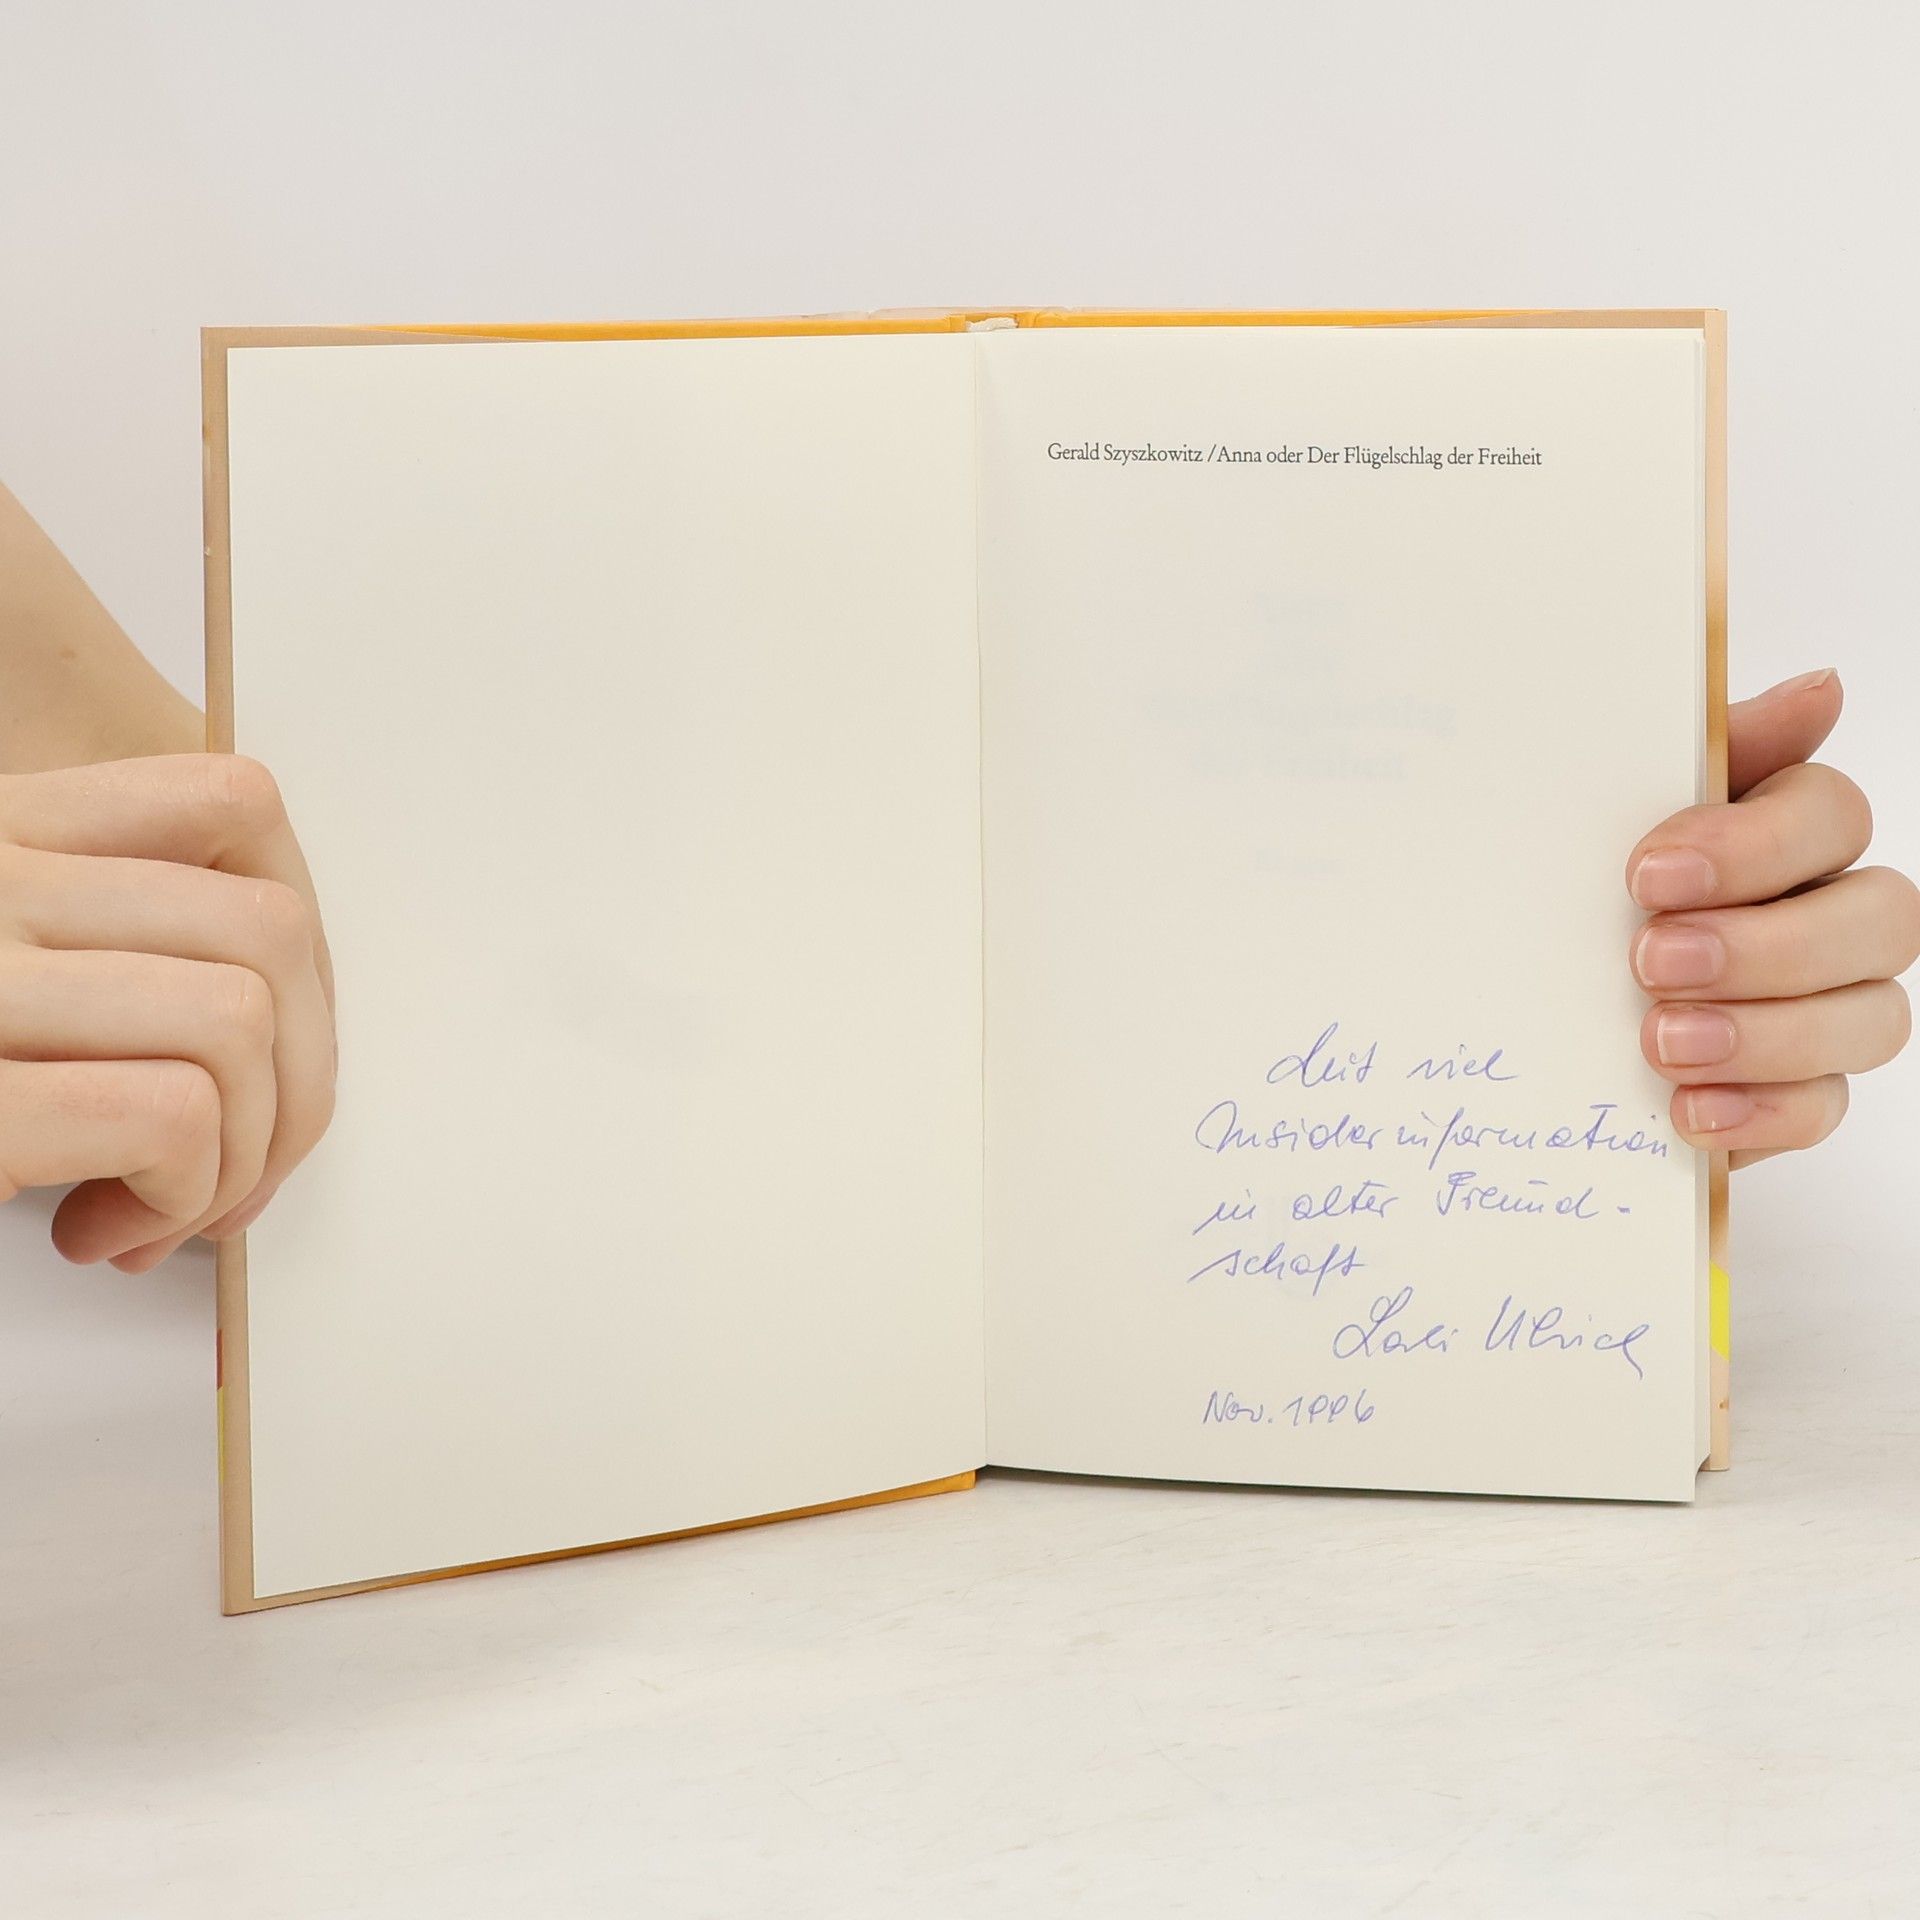 Gerald Szyszkowitz / Anna oder Der Flügelschlag der Freiheit
Mit viel
Insiderinformation
in alter Freund-
schaft
Ulrich
Nov. 1996